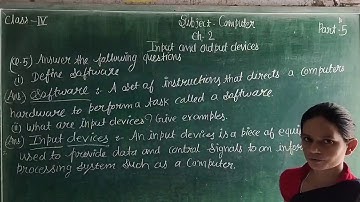 Class-IV
Subject- Computer
Part-5
Ch-2
Input and output devices
(Q.5) Answer the following questions
(i) Define Software
(Ans) Software :- A set of instructions that directs a computers
hardware to perform a task called a software.
(ii) What are input devices? Give examples.
(Ans) Input devices :- An input devices is a piece of equi
used to provide data and control signals to an infor
processing system such as a computer.